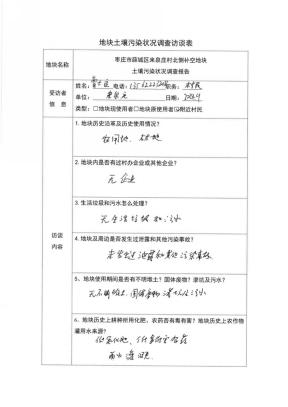 地块土壤污染状况调查访谈表
地块名称
枣庄市薛城区来泉庄村北侧补空地块
土壤污染状况调查报告
受访者
信 息
姓名: 电话: 职务: 村民
单位: 日期:
类型 □地块现使用者□地块原使用者☑附近村民
访谈
内容
1. 地块历史沿革及历史使用情况?
2. 地块内是否有过村办企业或其他企业?
无企业
3. 生活垃圾和污水怎么处理?
无生活垃圾和污水
4. 地块及周边是否发生过泄露和其他污染事故?
未发生过泄露和其他污染事故
5、地块使用期间是否有不明堆土? 固体废物? 渗坑及污水?
无不明堆土、固体废物、渗坑及污水
6. 地块历史上耕种所用化肥、农药否有毒有害? 地块历史上农作物
灌用水来源?
雨水灌溉